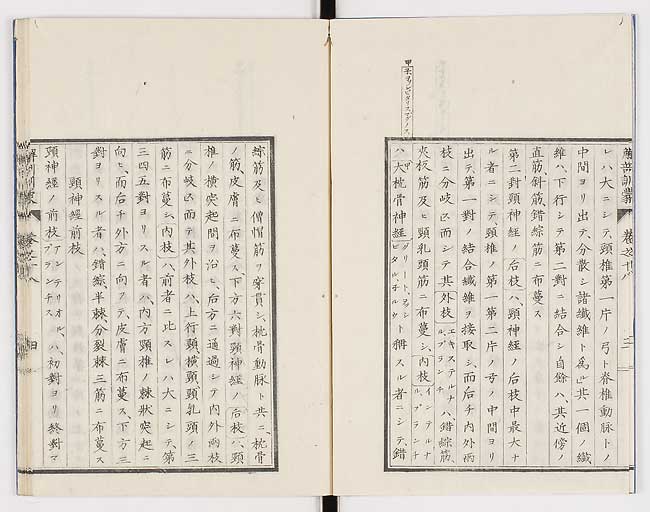 解剖訓蒙 卷之十八
レハ大ニシテ、頸椎第一片ノ弓ト脊椎動脉トノ
中間ヨリ出テ、分散シ諸纖維ト爲ル、共一個ノ纖
維ハ、下行シテ第二對ニ結合シ、自餘ハ、其近傍ノ
直筋、斜筋、錯綜筋ニ布蔓ス
第二對頸神經ノ後枝ハ、頸神經ノ後枝中最大ナ
ル者ニシテ、頸椎ノ第一第二片ノ弓ノ中間ヨリ
出テ、第一對ノ結合纖維ヲ接取シ、而后チ內外兩
枝ニ分岐ス、而シテ其外枝エキステルナルブランチハ、錯綜筋、
夾板筋及ヒ頸乳頭筋ニ布蔓シ、內枝インテルナルブランチ
ハ大枕骨神經甲グリートヲクシピタルネルウト稱スル者ニシテ、錯
綜筋及ヒ僧帽筋ヲ穿貫シ、枕骨動脉ト共ニ、枕骨
ノ筋、皮膚ニ布蔓ス、下方六對頸神經ノ後枝ハ、頸
椎ノ橫突起間ヲ沿ヒ、后方ニ通過シテ內外兩枝
ニ分岐ス、而テ其外枝ハ、上行頸、橫頸、頸乳頭ノ三
筋ニ布蔓シ、內枝ハ前者ニ比スレハ大ニシテ、第
三四五對ヨリスル者ハ、內方頸椎ノ棘狀突起ニ
向ヒ、而后チ外方ニ向フテ、皮膚ニ布蔓ス、下方三
對ヨリスル者ハ、錯綜、半棘、分裂棘三筋ニ布蔓ス
頸神經前枝
頸神經ノ前枝アンテリオルブランチスハ、初對ヨリ終對マ
解剖訓蒙 卷之十八 四